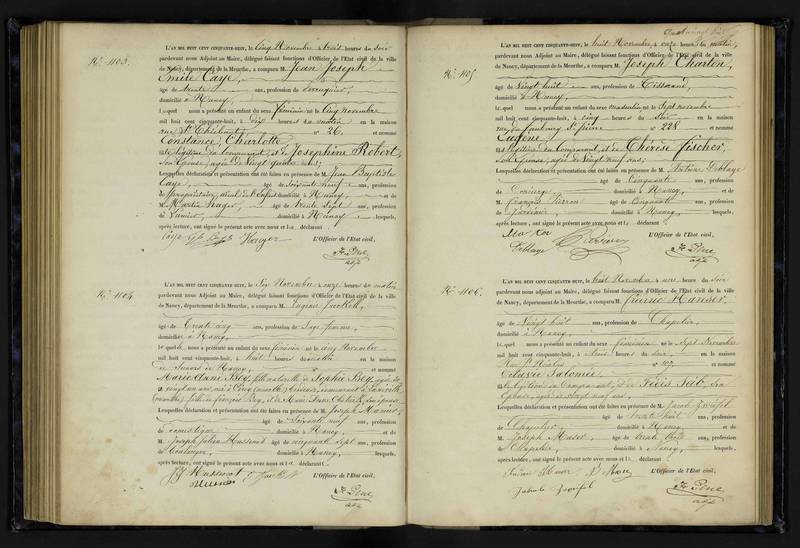 N° 1103.
L'AN MIL HUIT CENT CINQUANTE-HUIT, le Cinq Novembre à trois heures du soir
pardevant nous Adjoint au Maire, délégué faisant fonctions d'Officier de l'Etat civil de la ville
de Nancy, département de la Meurthe, a comparu M. Jean Joseph
Emile Caye,
âgé de trente ans, profession de
domicilié à Nancy,
lequel nous a présenté un enfant du sexe féminin né le Cinq novembre
mil huit cent cinquante-huit, à Six heures du matin en la maison
rue St n° 26, et nommé
Constance, Charlotte
fille légitime du Comparant, et de Joséphine Robert,
Son Epouse, agée de Vingt quatre ans;
Lesquelles déclaration et présentation ont été faites en présence de M. Jean Baptiste
Caye, âgé de Soixante neuf ans, profession
de propriétaire, domicilié à Nancy, et de
M. Martin Hager, âgé de trente Sept ans, profession
de Vannier, domicilié à Nancy, lesquels,
après lecture, ont signé le présent acte avec nous et le déclarant
Caye Hager L'Officier de l'Etat civil,
adj
N° 1104.
L'AN MIL HUIT CENT CINQUANTE-HUIT, le Six Novembre à onze heures du matin
pardevant nous Adjoint au Maire, délégué faisant fonctions d'Officier de l'Etat civil de la ville
de Nancy, département de la Meurthe, a comparu M. Eugénie
âgée de Trente cinq ans, profession de Sage femme,
domiciliée à Nancy,
laquelle nous a présenté un enfant du sexe féminin né le cinq Novembre
mil huit cent cinquante-huit, à huit heures du matin en la maison
de Secours de Nancy, n° et nommé
Marie Anne Bey, fille naturelle de Sophie Bey, agée de
vingt un ans,
fille de françois Bey, et de Marie Anne
Lesquelles déclaration et présentation ont été faites en présence de M. Joseph
âgé de Soixante neuf ans, profession
de domestique domicilié à Nancy, et de
M. Joseph Julien Husson âgé de cinquante sept ans, profession
de Cordonnier, domicilié à Nancy, lesquels,
après lecture, ont signé le présent acte avec nous et la déclarante
L'Officier de l'Etat civil,
adj
N° 1105.
L'AN MIL HUIT CENT CINQUANTE-HUIT, le huit Novembre à onze heures du matin,
pardevant nous Adjoint au Maire, délégué faisant fonctions d'Officier de l'Etat civil de la ville
de Nancy, département de la Meurthe, a comparu M. Joseph Charton,
âgé de Vingt huit ans, profession de Tisserand,
domicilié à Nancy,
lequel nous a présenté un enfant du sexe masculin né le Sept novembre
mil huit cent cinquante-huit, à cinq heures du soir en la maison
rue du faubourg St pierre n° 228 et nommé
Eugène
fils légitime du Comparant, et de Thérèse fischer,
Son Epouse, agée de Vingt neuf ans;
Lesquelles déclaration et présentation ont été faites en présence de M. Antoine Deblaye
âgé de Cinquante ans, profession
de Concierge, domicilié à Nancy, et de
M. françois Pierron âgé de Cinquante ans, profession
de Jardinier, domicilié à Nancy, lesquels,
après lecture, ont signé le présent acte avec nous et le déclarant
Deblaye Pierron L'Officier de l'Etat civil,
adj
N° 1106.
L'AN MIL HUIT CENT CINQUANTE-HUIT, le huit Novembre à une heure du soir
pardevant nous Adjoint au Maire, délégué faisant fonctions d'Officier de l'Etat civil de la ville
de Nancy, département de la Meurthe, a comparu M.
âgé de Vingt huit ans, profession de Chapelier,
domicilié à Nancy,
lequel nous a présenté un enfant du sexe féminin né le Sept Novembre
mil huit cent cinquante-huit, à heures du soir, en la maison
Rue St Nicolas n° 107, et nommé
Octavie Salomée,
fille légitime du Comparant, et de
Epouse, agée de vingt neuf ans,
Lesquelles déclaration et présentation ont été faites en présence de M. Jacob
âgé de trente huit ans, profession
de Chapelier, domicilié à Nancy, et de
M. Joseph âgé de trente trois ans, profession
de Chapelier, domicilié à Nancy, lesquels,
après lecture, ont signé le présent acte avec nous et le déclarant
L'Officier de l'Etat civil,
adj